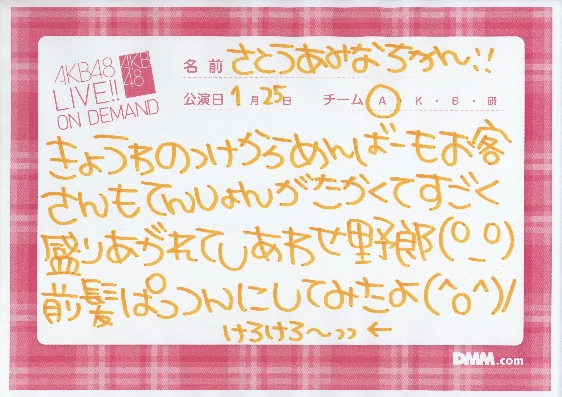 AKB48
LIVE!!
ON DEMAND
AKB
48
名前 さとうあみなちゃん!!
公演日 1月25日 チーム A・K・B・研
きょうわのっけからめんばーもお客
さんもてんしょんがたかくてすごく
盛りあがれてしあわせ野郎(○_○)
前髪ぱっつんにしてみたよ(^o^)/
けろけろ～っっ←
DMM.com